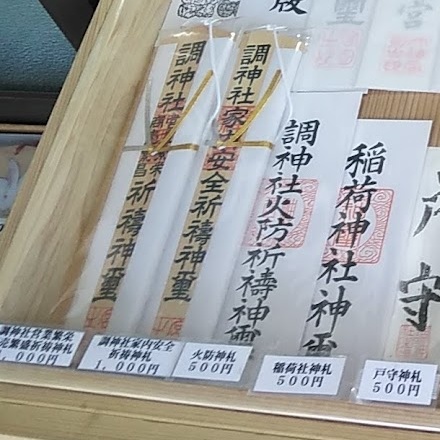 調神社
祈禱神璽
調神社家内安全祈禱神璽
調神社火防祈禱神
稲荷神社神
守
宮
璽
調神社営業繁栄
売繁盛祈祷神札
1,000円
調神社家内安全
祈祷神札
1,000円
火防神札
500円
稲荷社神札
500円
戸守神札
500円